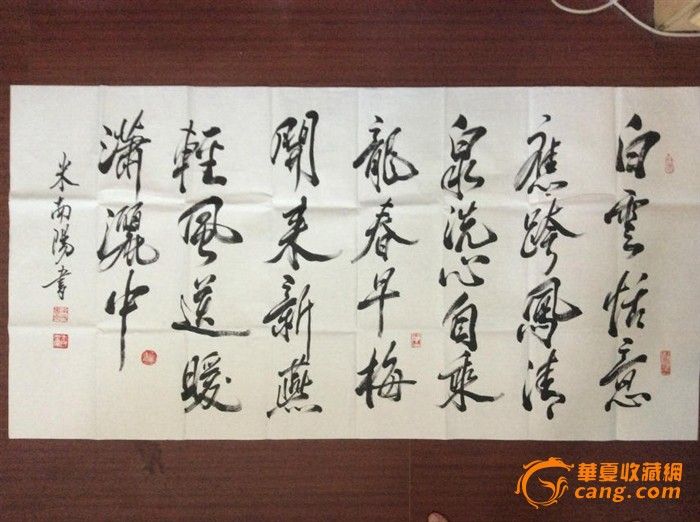 白雲恬意
應跨鳳清
泉洗心自乘
龍春早梅
開来新燕
輕風送暖
瀟灑中
米南陽書
華夏收藏網
cang.com